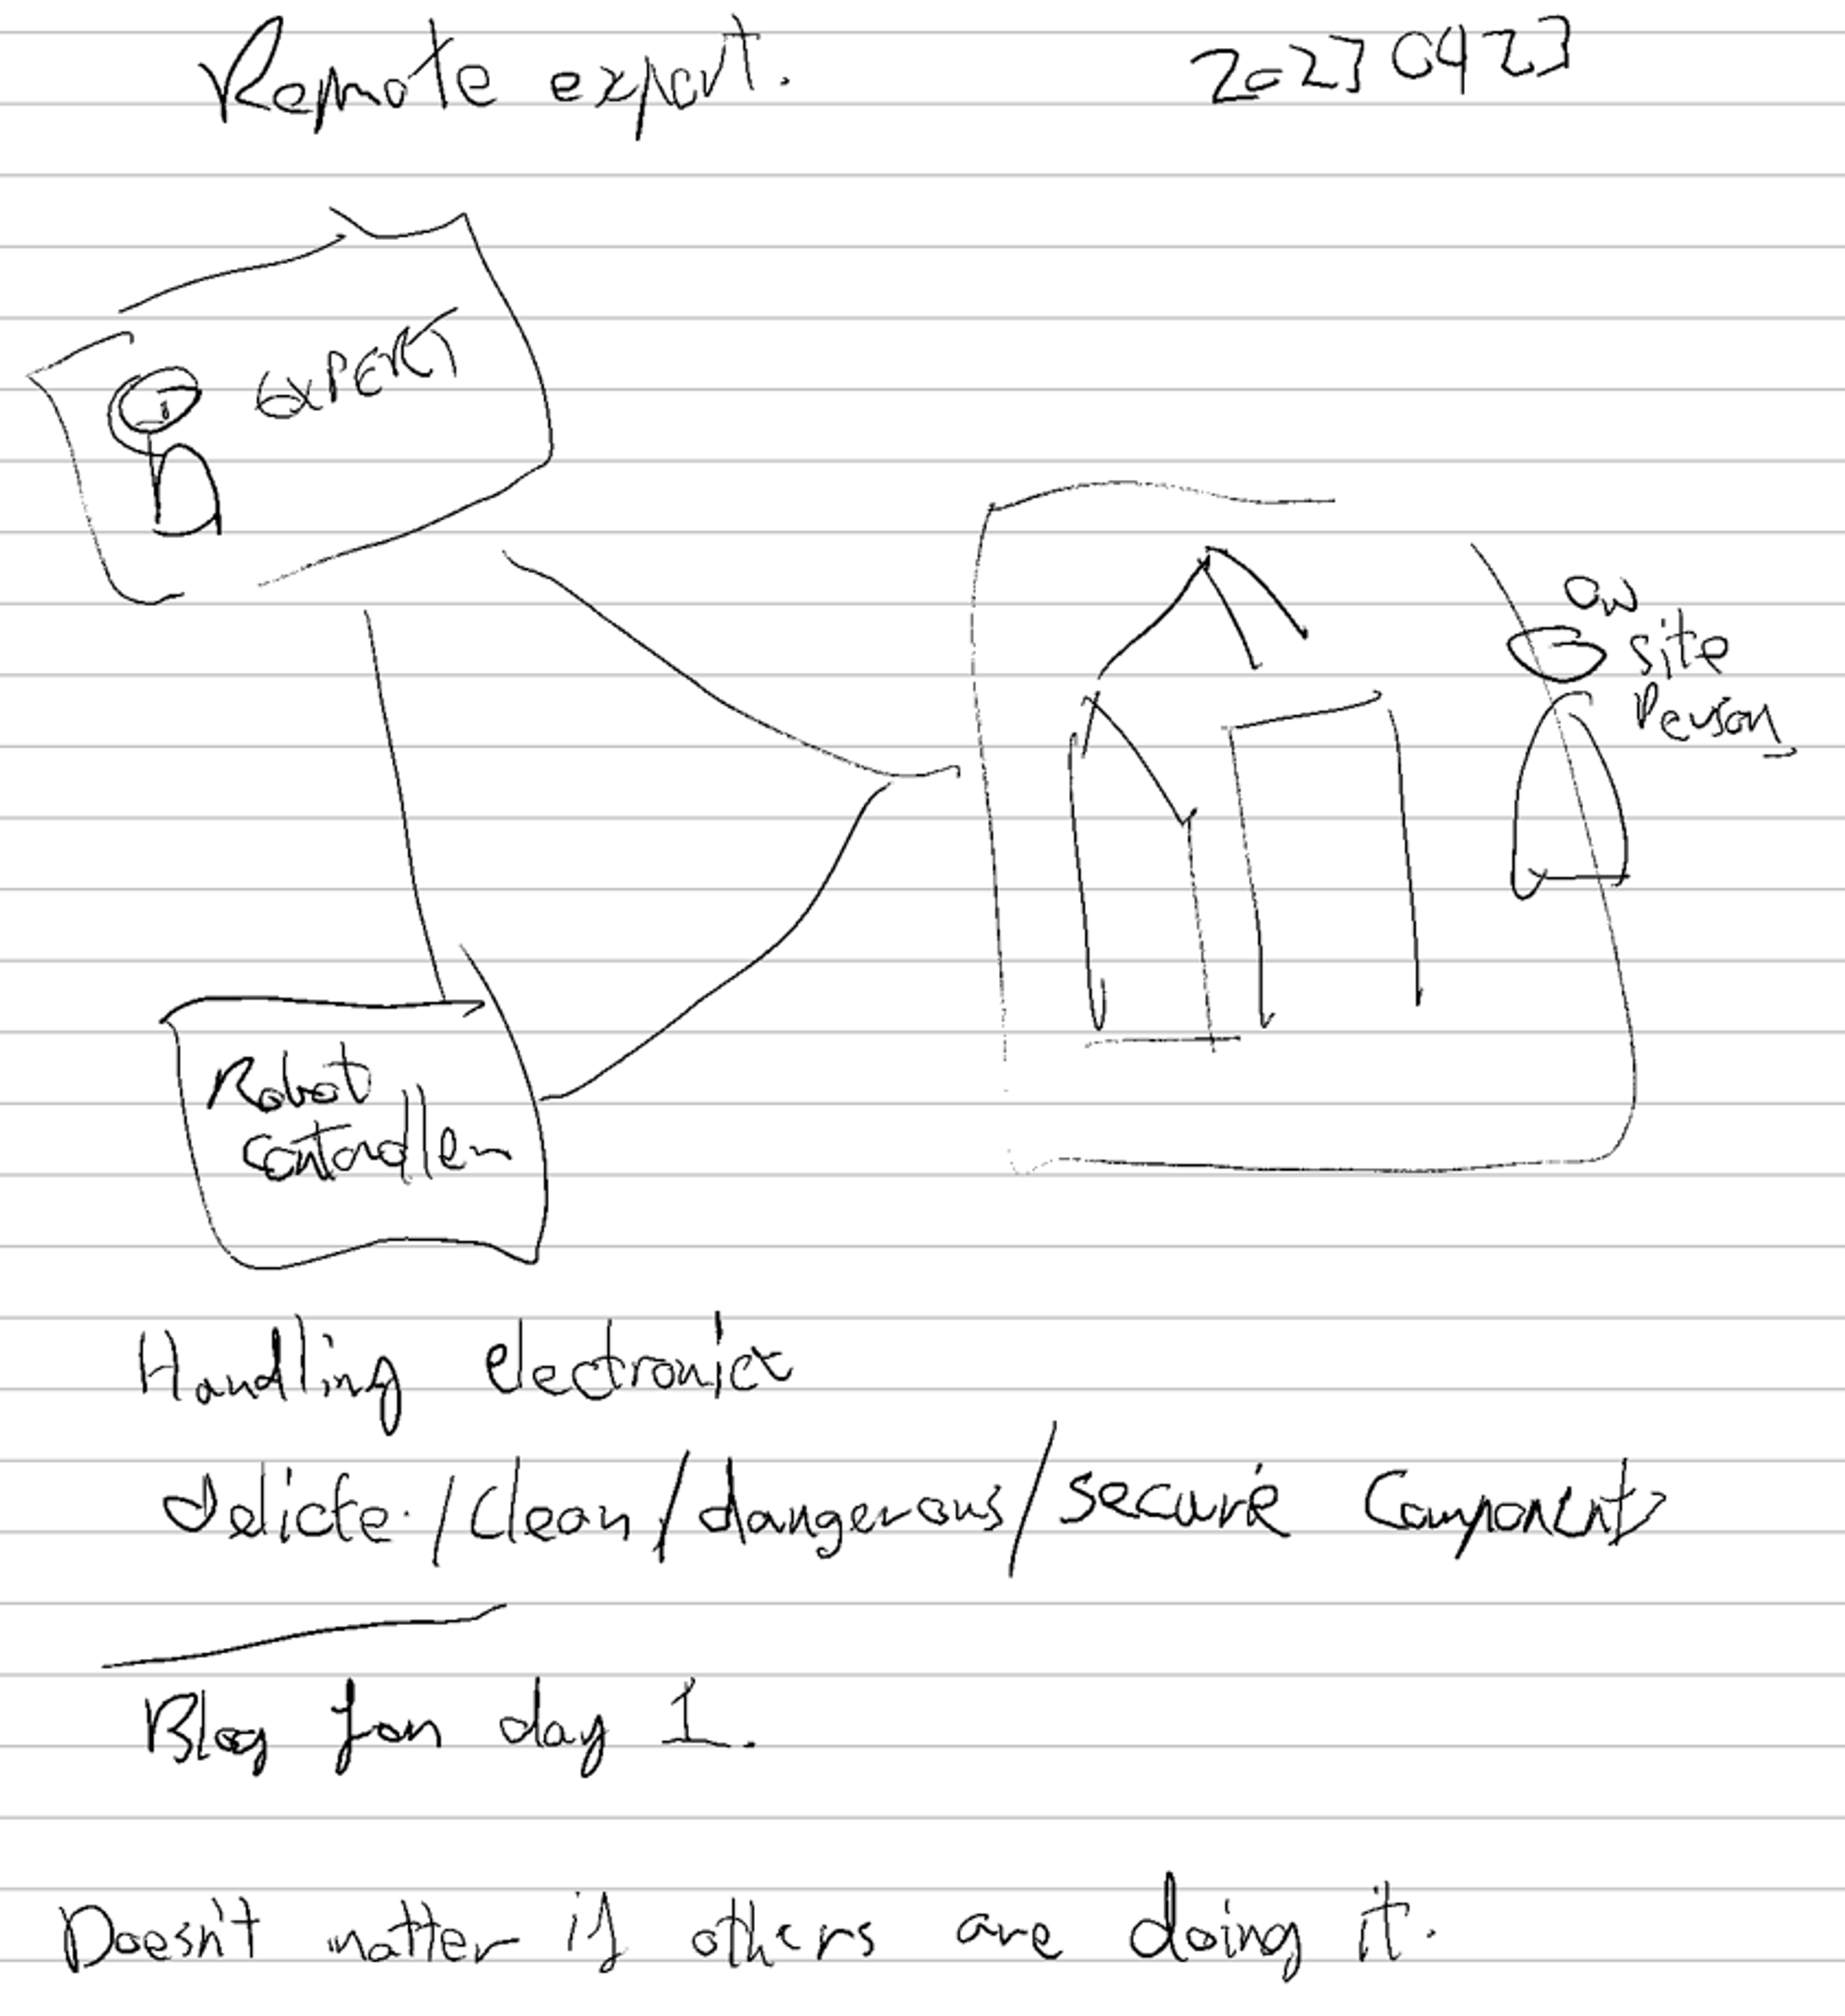 Remote expert. 20230423
EXPERT
On
site
Person
Robot
controller
Handling electronics
delicte./clean/dangerous/secure Components
Blog for day 1.
Doesn't matter if others are doing it.